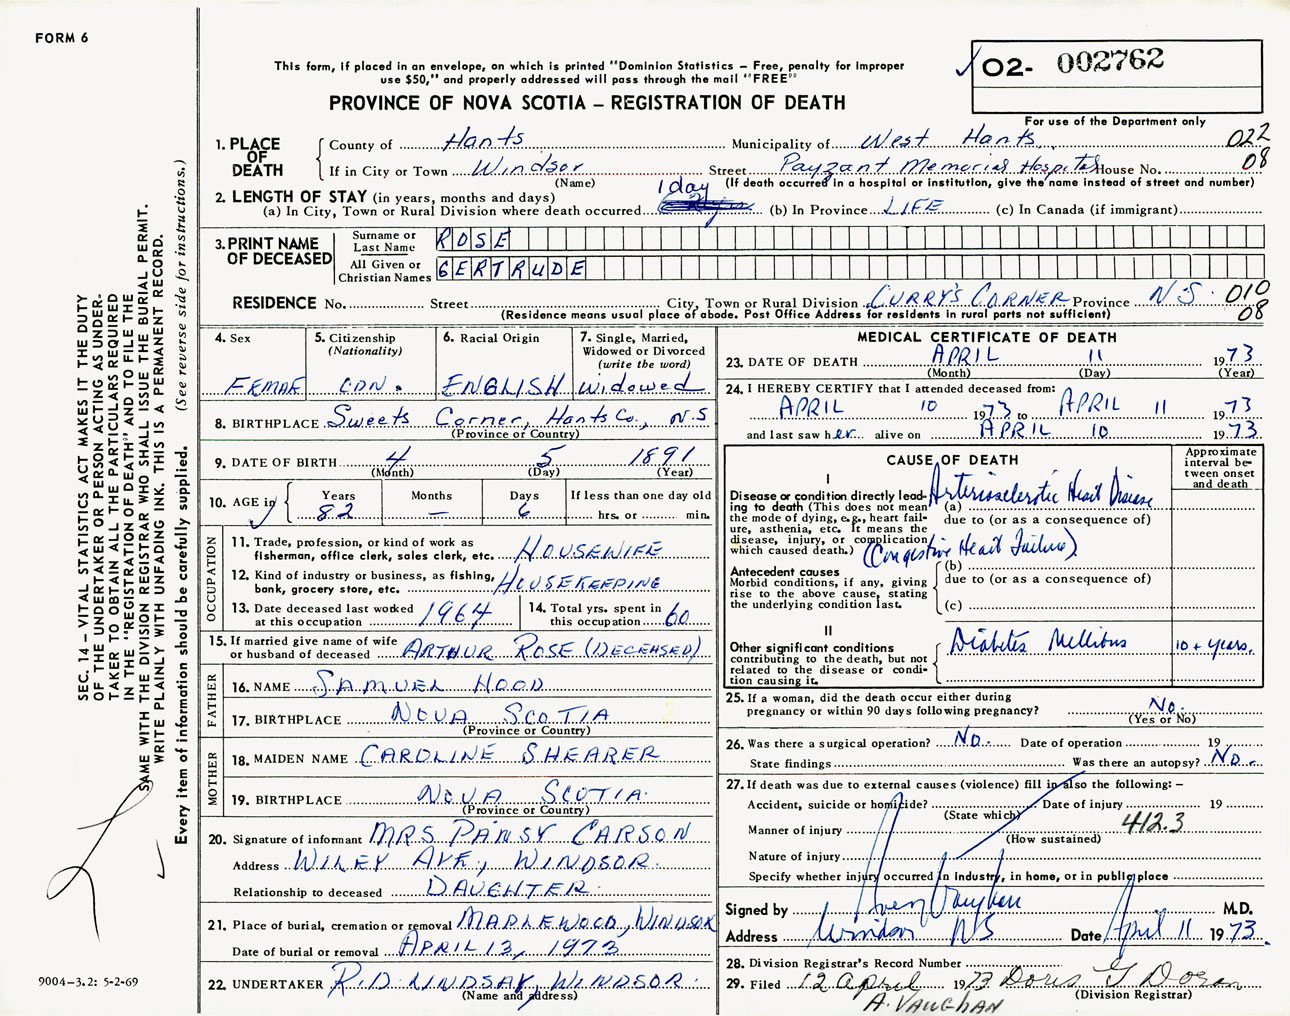 FORM 6
This form, if placed in an envelope, on which is printed "Dominion Statistics – Free, penalty for improper
use $50," and properly addressed will pass through the mail "FREE"
PROVINCE OF NOVA SCOTIA – REGISTRATION OF DEATH
O2- 002762
For use of the Department only
1. PLACE OF DEATH
County of Hants Municipality of West Hants 022
If in City or Town Windsor Street Payzant Memorial Hospital House No. 08
(Name) (If death occurred in a hospital or institution, give the name instead of street and number)
2. LENGTH OF STAY (in years, months and days) 1 day
(a) In City, Town or Rural Division where death occurred (b) In Province LIFE (c) In Canada (if immigrant)
3. PRINT NAME OF DECEASED
Surname or Last Name ROSE
All Given or Christian Names GERTRUDE
RESIDENCE No. Street City, Town or Rural Division CURRY'S CORNER Province N.S. 010
(Residence means usual place of abode. Post Office Address for residents in rural parts not sufficient) 08
4. Sex FEMAE
5. Citizenship (Nationality) CDN.
6. Racial Origin ENGLISH
7. Single, Married, Widowed or Divorced (write the word) Widowed
8. BIRTHPLACE Sweets Corner, Hants Co., N.S
(Province or Country)
9. DATE OF BIRTH 4 5 1891
(Month) (Day) (Year)
10. AGE in Years 82 Months — Days 6 If less than one day old hrs. or min.
OCCUPATION
11. Trade, profession, or kind of work as
fisherman, office clerk, sales clerk, etc. HOUSEWIFE
12. Kind of industry or business, as fishing,
bank, grocery store, etc. HOUSEKEEPING
13. Date deceased last worked
at this occupation 1964
14. Total yrs. spent in
this occupation 60
15. If married give name of wife
or husband of deceased ARTHUR ROSE (DECEASED)
FATHER
16. NAME SAMUEL HOOD
17. BIRTHPLACE NOVA SCOTIA
(Province or Country)
MOTHER
18. MAIDEN NAME CAROLINE SHEARER
19. BIRTHPLACE NOVA SCOTIA.
(Province or Country)
20. Signature of informant MRS PANSY CARSON
Address WILEY AVE., WINDSOR.
Relationship to deceased DAUGHTER.
21. Place of burial, cremation or removal MAPLEWOOD, WINDSOR
Date of burial or removal APRIL 13, 1973
22. UNDERTAKER R.D. LINDSAY, WINDSOR.
(Name and address)
MEDICAL CERTIFICATE OF DEATH
23. DATE OF DEATH APRIL 11 1973
(Month) (Day) (Year)
24. I HEREBY CERTIFY that I attended deceased from:
APRIL 10 1973 to APRIL 11 1973
and last saw her alive on APRIL 10 1973
CAUSE OF DEATH
Approximate interval between onset and death
I
Disease or condition directly lead-
ing to death (This does not mean
the mode of dying, e.g., heart fail-
ure, asthenia, etc. It means the
disease, injury, or complication
which caused death.)
(a) Arteriosclerotic Heart Disease
due to (or as a consequence of)
(Congestive Heart Failure)
Antecedent causes
Morbid conditions, if any, giving
rise to the above cause, stating
the underlying condition last.
(b)
due to (or as a consequence of)
(c)
II
Other significant conditions
contributing to the death, but not
related to the disease or condi-
tion causing it.
Diabetes Mellitus 10 + years.
25. If a woman, did the death occur either during
pregnancy or within 90 days following pregnancy? No.
(Yes or No)
26. Was there a surgical operation? NO. Date of operation 19
State findings Was there an autopsy? NO.
27. If death was due to external causes (violence) fill in also the following: –
Accident, suicide or homicide? Date of injury 19
(State which)
Manner of injury 412.3
(How sustained)
Nature of injury
Specify whether injury occurred in industry, in home, or in public place
Signed by Vaughan M.D.
Address Windsor NS Date April 11 1973.
28. Division Registrar's Record Number
29. Filed 12 April 1973 Doris Doran
(Division Registrar)
A. VAUGHAN
SEC. 14 – VITAL STATISTICS ACT MAKES IT THE DUTY
OF THE UNDERTAKER OR PERSON ACTING AS UNDER-
TAKER TO OBTAIN ALL THE PARTICULARS REQUIRED
IN THE "REGISTRATION OF DEATH" AND TO FILE THE
SAME WITH THE DIVISION REGISTRAR WHO SHALL ISSUE THE BURIAL PERMIT.
WRITE PLAINLY WITH UNFADING INK. THIS IS A PERMANENT RECORD.
Every item of information should be carefully supplied. (See reverse side for instructions.)
9004–3.2: 5-2-69